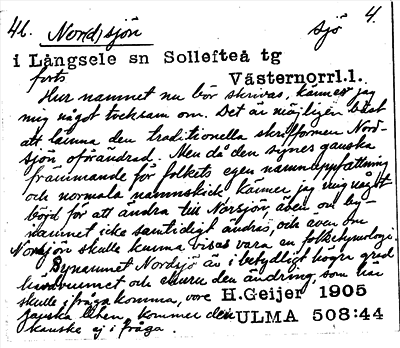 46. Nordsjön sjö 4.
i Långsele sn Sollefteå tg
forts Västernorrl.l.
Hur namnet nu bör skrivas, känner jag
mig något tveksam om. Det är möjligen bäst
att lämna den traditionella skriftformen Nord-
sjön oförändrad. Men då den synes ganska
främmande för folkets egen namnuppfattning
och normala namnskick känner jag mig något
böjd för att ändra till Norsjön, även om by-
namnet icke samtidigt ändras, och även om
Nordsjön skulle kunna visas vara en folketymologi.
Bynamnet Nordsjö är i betydligt högre grad
hävdvunnet och den ändring, som här
skulle i fråga komma, vore H.Geijer 1905
ganska liten, kommer den ULMA 508:44
kanske ej i fråga.